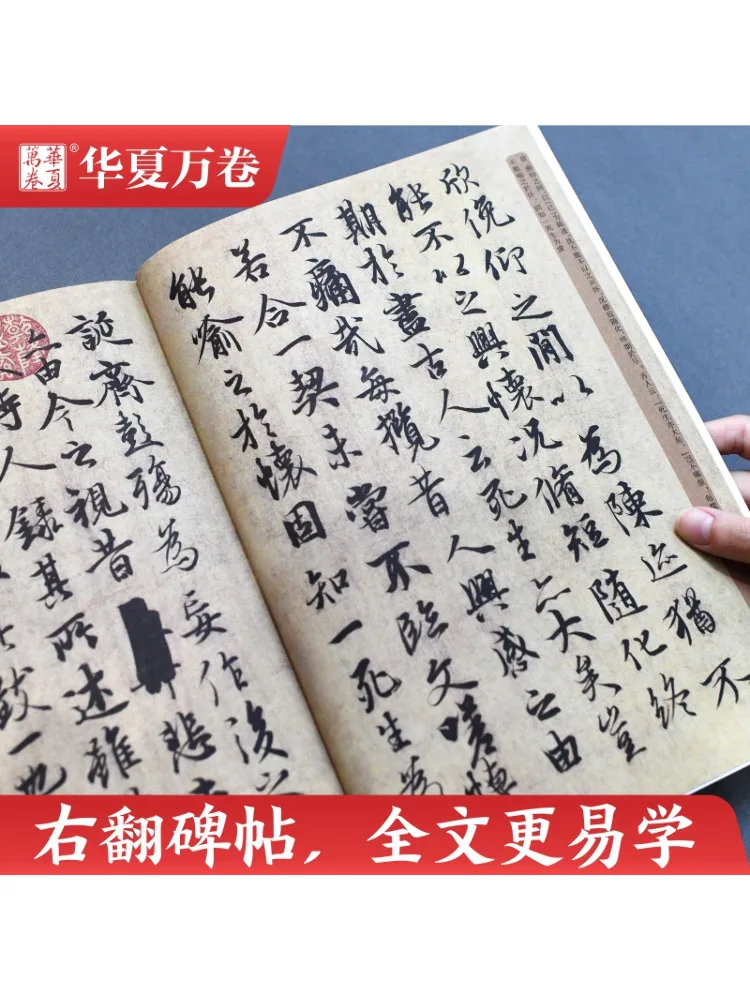 華夏
萬卷
®
华夏万卷
欣俛仰之閒以為陳迹猶不
能不以之興懷况脩短随化終
期於盡古人云死生亦大矣豈
不痛哉每攬昔人興感之由
若合一契未嘗不臨文嗟悼
能喻之於懷固知一死生為
誕齊彭殤為妄作後之
由今之視昔 悲
時人錄其所述雖
致一也
右翻碑帖,全文更易学